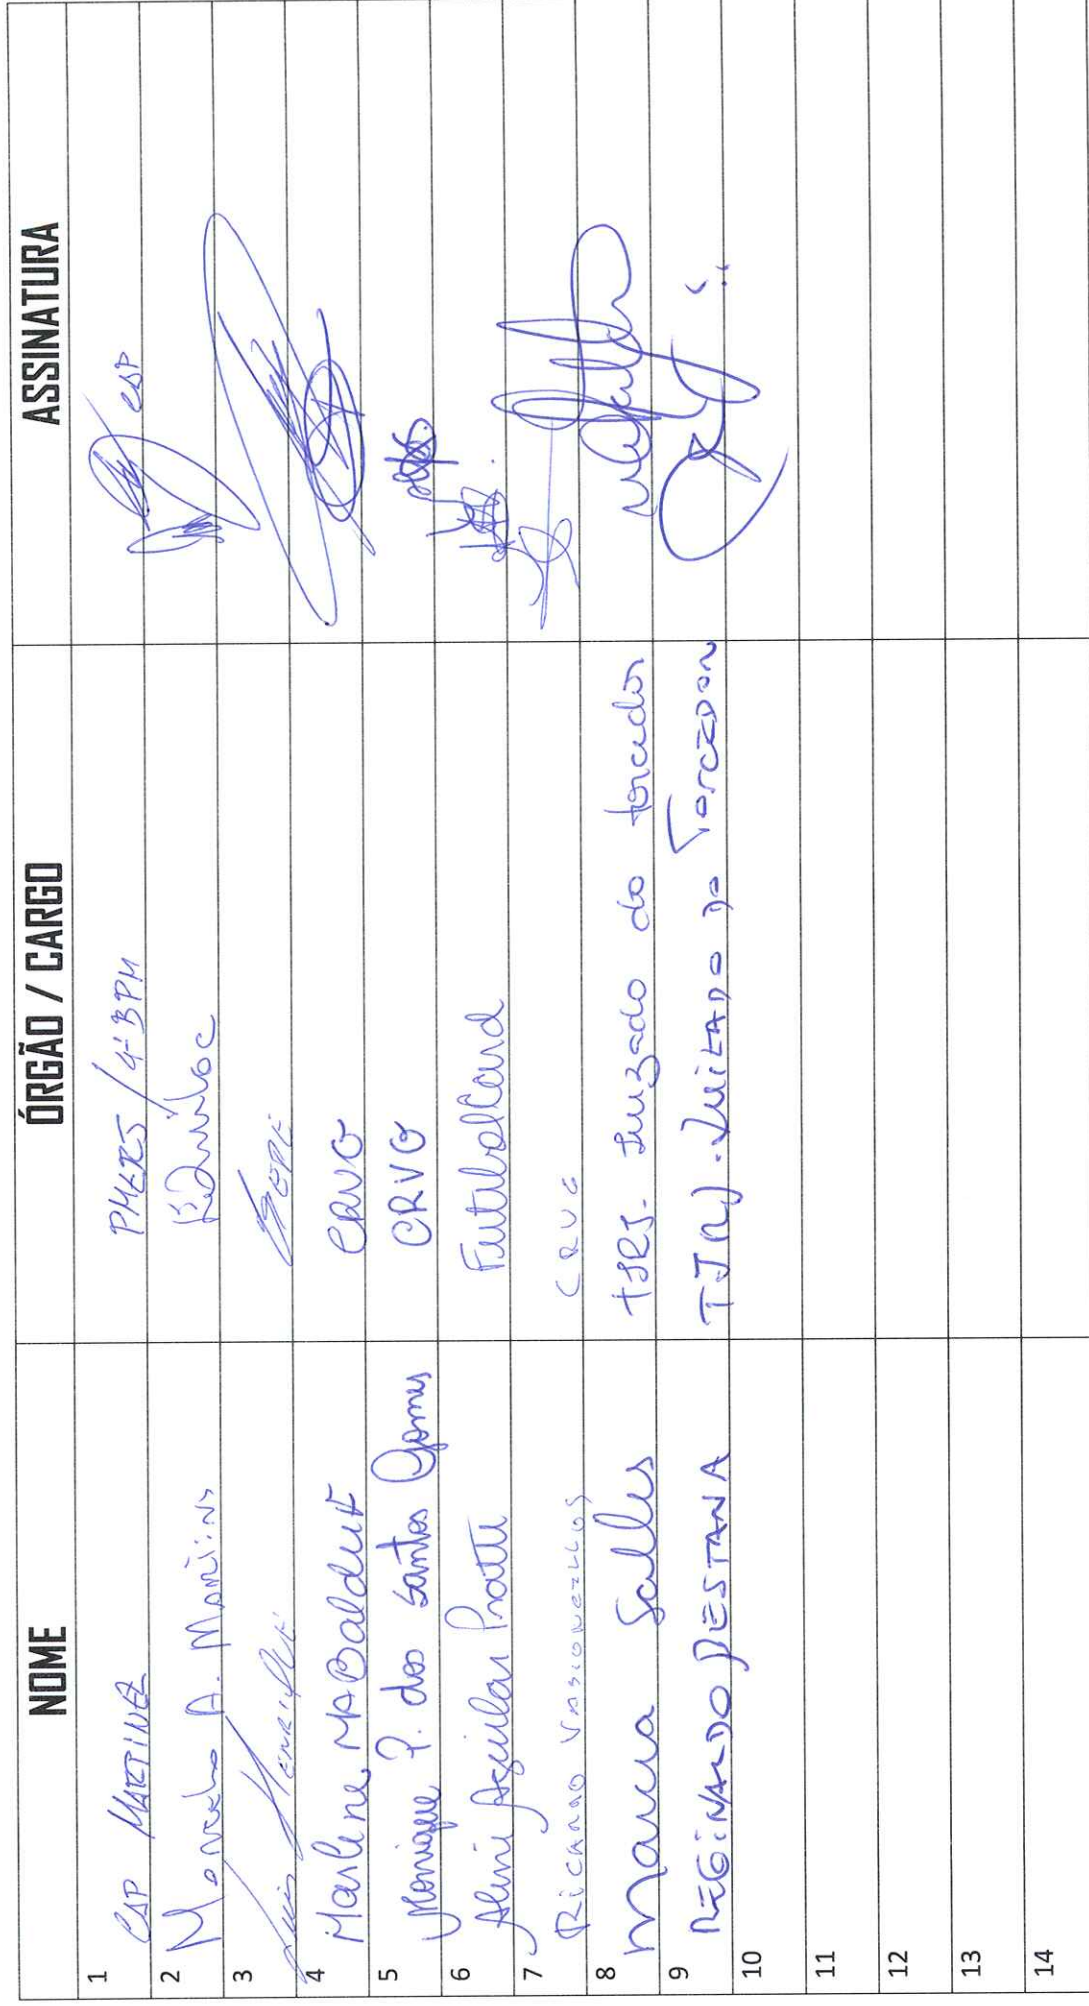 NOME ÓRGÃO / CARGO ASSINATURA
1 CAP MARTINEZ PMERJ / 4º BPM CAP
2 Marcelo A. Martins
3 Luis Henrique BEPE
4 Marlene MABaldut CRVG
5 Monique P. dos Santos Gomes CRVG
6 Aguilar Pratti FutebolCard
7 RICARDO VASCONCELLOS CRVG
8 Marcia Salles TJRJ - Juizado do torcedor
9 REGINALDO PESTANA TJRJ - Juizado do TORCEDOR
10
11
12
13
14